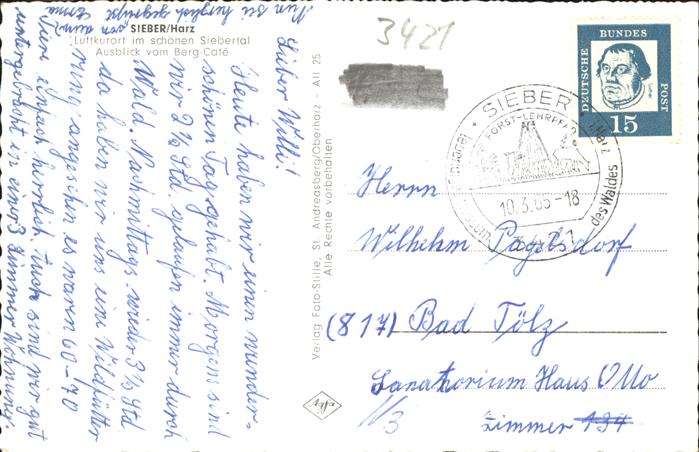 SIEBER/Harz
Luftkurort im schönen Siebertal
Ausblick vom Berg-Café
Lieber Willi!
Heute haben wir einen wunder-
schönen Tag gehabt. Morgens sind
wir 2 1/2 Std gelaufen immer durch
Wald. Nachmittags wieder 3 1/2 Std
da haben wir uns eine Wildfütter
rung angesehen es waren 60-70
Tiere einfach herrlich. Auch sind wir gut
untergebracht in einer 3 Zimmer Wohnung.
Nun sei herzlich gegrüßt
von deiner
Verlag Foto-Stille, St. Andreasberg/Oberharz - Alt 25
Alle Rechte vorbehalten
Agfa
3421
DEUTSCHE BUNDES POST
15
SIEBER
Harz
FORST-LEHRPFAD
des Waldes
10.3.65-18
3421
Herrn
Wilhelm Pagelsdorf
(817) Bad Tölz
Sanatorium Haus Otto
Zimmer 134